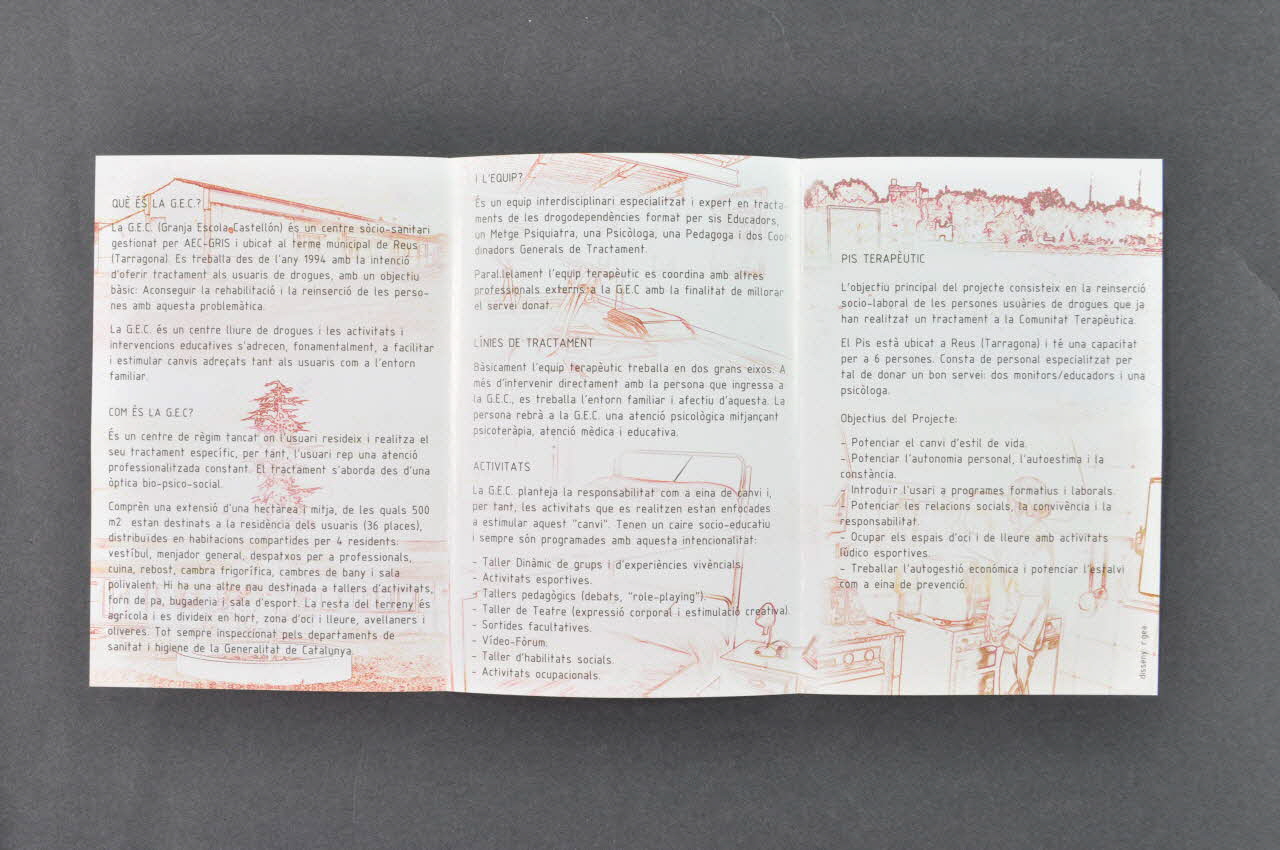 QUÈ ÉS LA G.E.C.?
La G.E.C. (Granja Escola Castellón) és un centre sòcio-sanitari
gestionat per AEC-GRIS i ubicat al terme municipal de Reus
(Tarragona). Es treballa des de l'any 1994 amb la intenció
d'oferir tractament als usuaris de drogues, amb un objectiu
bàsic: Aconseguir la rehabilitació i la reinserció de les perso-
nes amb aquesta problemàtica.
La G.E.C. és un centre lliure de drogues i les activitats i
intervencions educatives s'adrecen, fonamentalment, a facilitar
i estimular canvis adreçats tant als usuaris com a l'entorn
familiar.
COM ÉS LA G.E.C?
És un centre de règim tancat on l'usuari resideix i realitza el
seu tractament específic, per tant, l'usuari rep una atenció
professionalitzada constant. El tractament s'aborda des d'una
òptica bio-psico-social.
Comprèn una extensió d'una hectarea i mitja, de les quals 500
m2 estan destinats a la residència dels usuaris (36 places),
distribuïdes en habitacions compartides per 4 residents:
vestíbul, menjador general, despatxos per a professionals,
cuina, rebost, cambra frigorífica, cambres de bany i sala
polivalent. Hi ha una altre nau destinada a tallers d'activitats,
forn de pa, bugaderia i sala d'esport. La resta del terreny és
agrícola i es divideix en hort, zona d'oci i lleure, avellaners i
oliveres. Tot sempre inspeccionat pels departaments de
sanitat i higiene de la Generalitat de Catalunya.
I L'EQUIP?
És un equip interdisciplinari especialitzat i expert en tracta-
ments de les drogodependències format per sis Educadors,
un Metge Psiquiatra, una Psicòloga, una Pedagoga i dos Coor-
dinadors Generals de Tractament.
Paral.lelament l'equip terapèutic es coordina amb altres
professionals externs a la G.E.C amb la finalitat de millorar
el servei donat.
LÍNIES DE TRACTAMENT
Bàsicament l'equip terapèutic treballa en dos grans eixos. A
més d'intervenir directament amb la persona que ingressa a
la G.E.C., es treballa l'entorn familiar i afectiu d'aquesta. La
persona rebrà a la G.E.C. una atenció psicològica mitjançant
psicoteràpia, atenció mèdica i educativa.
ACTIVITATS
La G.E.C. planteja la responsabilitat com a eina de canvi i,
per tant, les activitats que es realitzen estan enfocades
a estimular aquest "canvi". Tenen un caire socio-educatiu
i sempre són programades amb aquesta intencionalitat:
- Taller Dinàmic de grups i d'experiències vivencials.
- Activitats esportives.
- Tallers pedagògics (debats, "role-playing").
- Taller de Teatre (expressió corporal i estimulació creativa).
- Sortides facultatives.
- Vídeo-Fòrum.
- Taller d'habilitats socials.
- Activitats ocupacionals.
PIS TERAPÈUTIC
L'objectiu principal del projecte consisteix en la reinserció
socio-laboral de les persones usuàries de drogues que ja
han realitzat un tractament a la Comunitat Terapèutica.
El Pis està ubicat a Reus (Tarragona) i té una capacitat
per a 6 persones. Consta de personal especialitzat per
tal de donar un bon servei: dos monitors/educadors i una
psicòloga.
Objectius del Projecte:
- Potenciar el canvi d'estil de vida.
- Potenciar l'autonomia personal, l'autoestima i la
constància.
- Introduïr l'usari a programes formatius i laborals.
- Potenciar les relacions socials, la convivència i la
responsabilitat.
- Ocupar els espais d'oci i de lleure amb activitats
lúdico esportives.
- Treballar l'autogestió económica i potenciar l'estalvi
com a eina de prevenció.
disseny: r.gea